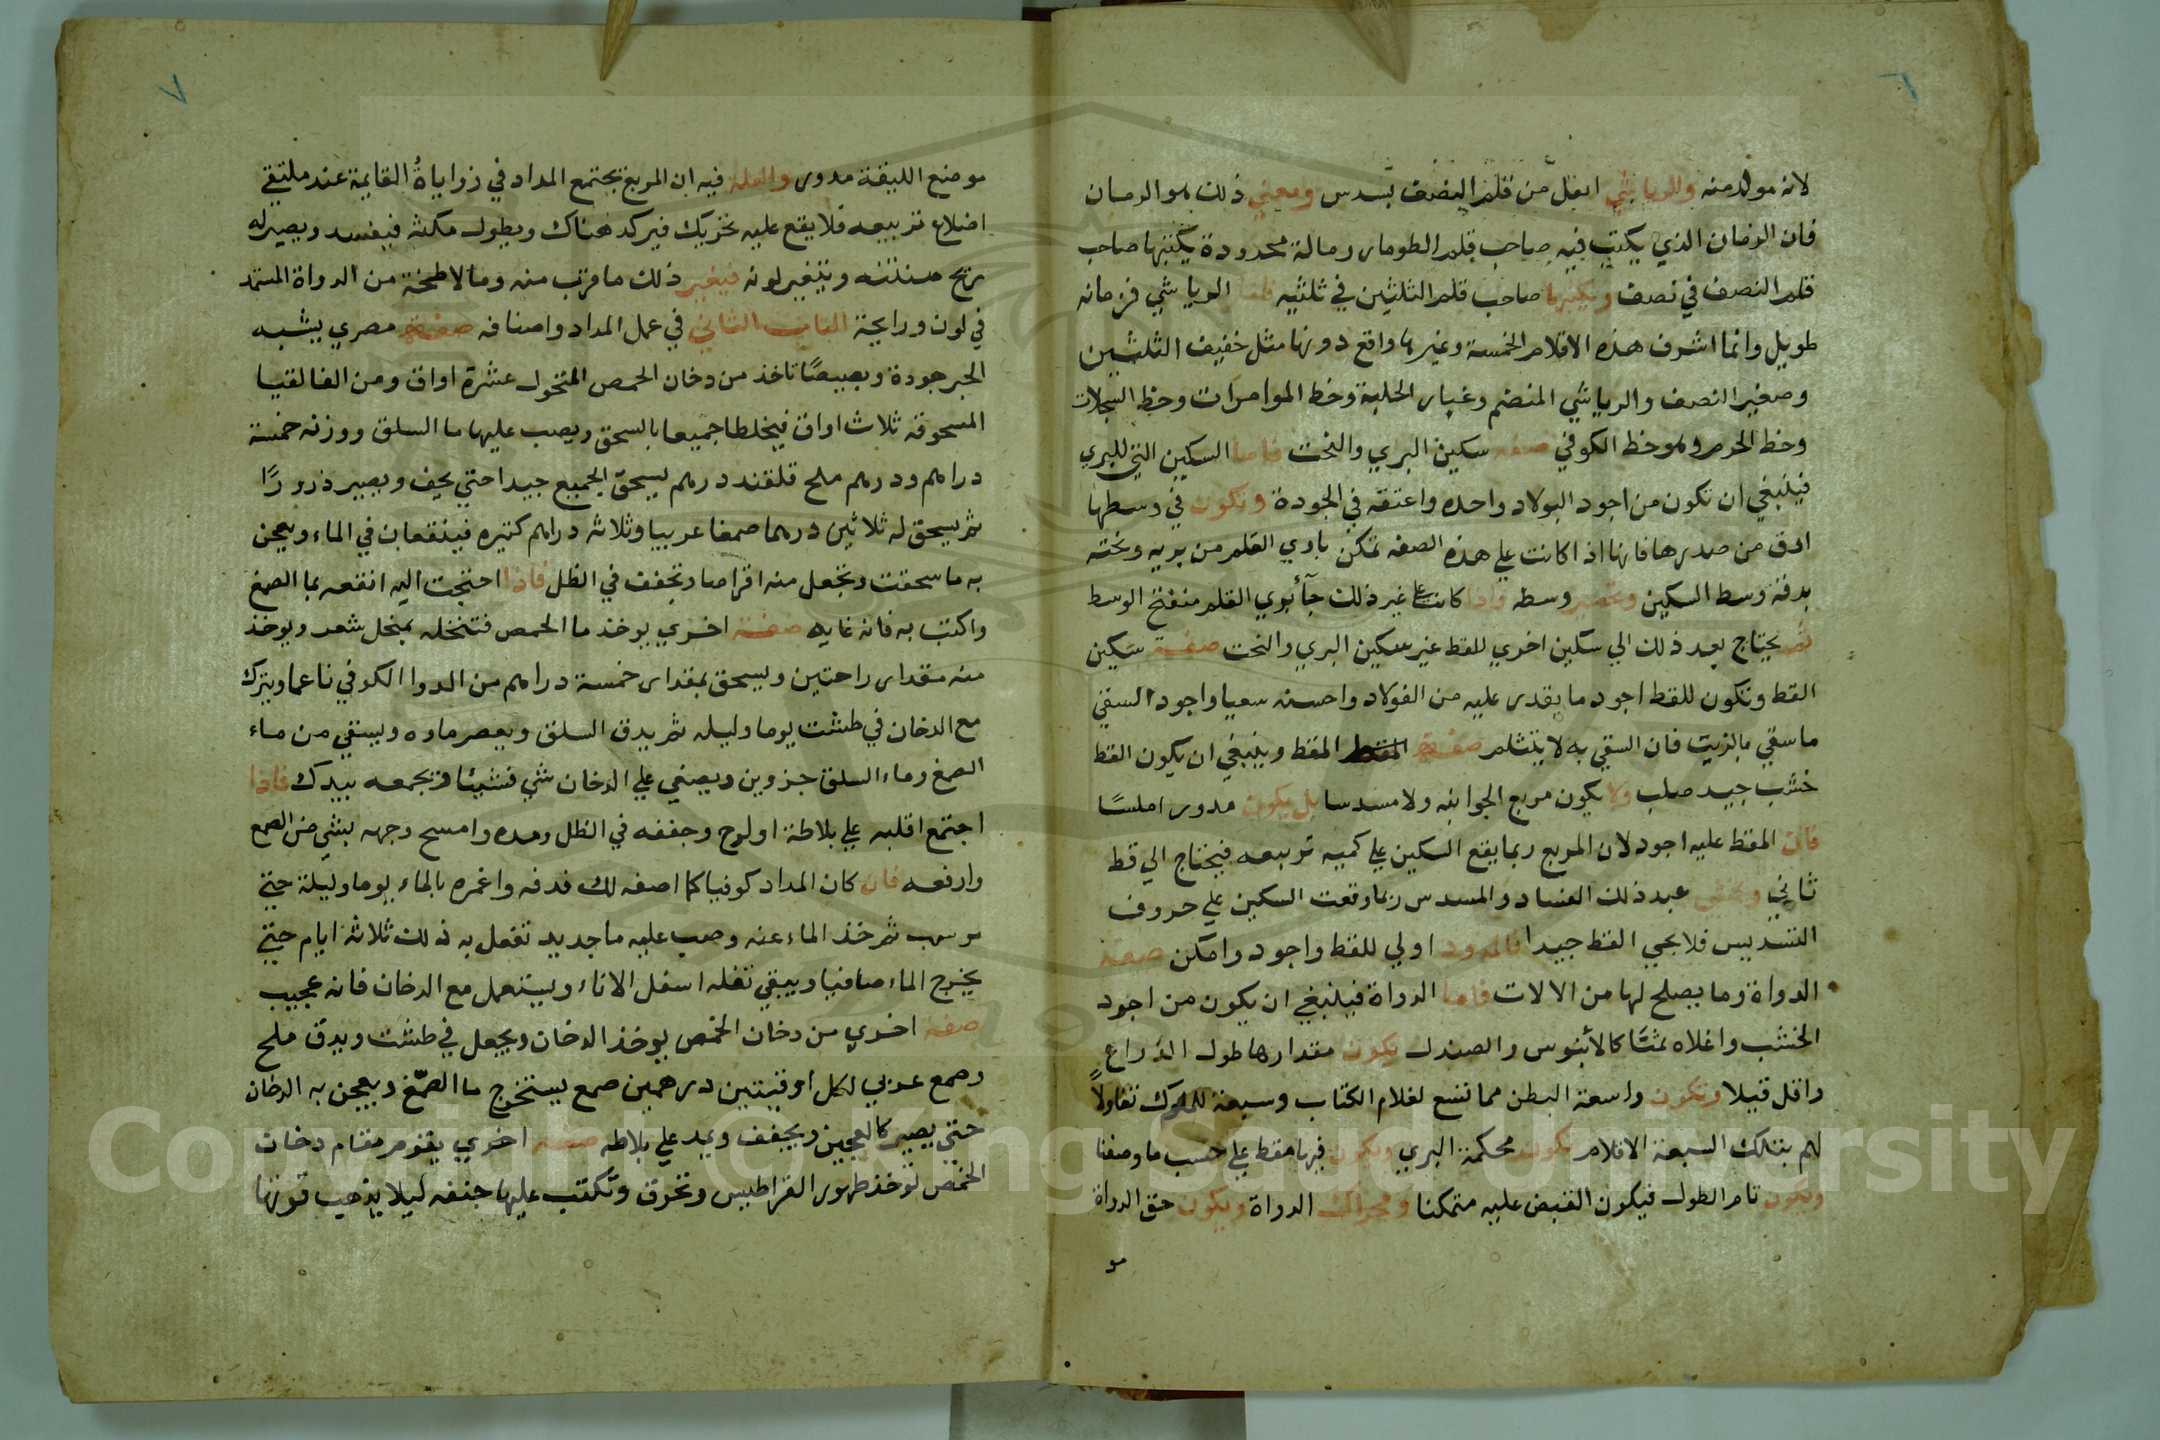 ٦
لانه مولد منه وللرياشي اىقل من قلم النصف بسدس ومعني ذلك هو الزمان
فان الزمان الذي يكتب فيه صاحب قلم الطومار رسالة محدودة يكتبها صاحب
قلم النصف في نصف ويكتبها صاحب قلم الثلثين في ثلثيه فاما الرياشي فزمانه
طويل وانما اشرف هذه الاقلام الخمسة وغيرها واقع دونها مثل خفيف الثلثين
وصغير النصف والرياشي المنضم وغبار الحلبة وخط الموامرات وخط السجلات
وخط الحرم وهو خط الكوفي صفه سكين البري والنحت فاما السكين التي للبري
فينبغي ان تكون من اجود البولاد واحده واعتقه في الجودة وتكون في وسطها
ادق من صدرها فانها اذا كانت علي هذه الصفه تمكن باري القلم من بريه ونحته
بدقة وسط السكين وسطه واذا كانت علي غير ذلك جآ بري القلم منفتح الوسط
ثم يحتاج بعد ذلك الي سكين اخري للقط غير سكين البري والنحت صفة سكين
القط وتكون للقط اجود ما يقدر عليه من الفولاد واحسنه سعيا واجود السقي
ما سقي بالزيت فان السقي به لا يتثلم صفة المقط وينبغي ان يكون القط
خشب جيد صلب ولا يكون مربع الجوانبه ولا مسدسا بل يكون مدور املسًا
فان المقط عليه اجود لان المربع ربما يقع السكين علي كميه تربيعه فيحتاج الي قط
ثاني عبد ذلك الفساد والمسدس ربما وقعت السكين علي حروف
التسديس فلا يجي القط جيدا فالمدور اولي للقط واجود وامكن صفة
الدواة وما يصلح لها من الالات فاما الدواة فينبغي ان يكون من اجود
الخشب واغلاه ثمنًا كالأبنوس والصندل يكون مقدارها طول الذراع
واقل قيلا وتكون واسعة البطن مما تسع لقلام الكتاب وسبعة للملوك تفاولًا
لهم بتلك السبعة الاقلام تكون محكمة البري ويكون فيها مقط علي حسب ما وصفنا
ويكون تام الطول فيكون القبض عليه متمكنا ومحراك الدواة ويكون حق الدواة
مو
٧
موضع الليقة مدور والعلة فيه ان المربع يجتمع المداد في زواياهُ القايمة عند ملتقي
اضلاع تربيعه فلا يقع عليه تحريك فيركد هناك ويطول مكثه فيفسد ويصير له
ريح منتنه ويتغير لونه فيغير ذلك ما قرب منه وما لاطخة من الدواة المستمد
في لون ورايحة الباب الثاني في عمل المداد واصنافه صفة مصري يشبه
الحبر جودة وبصيصًا تاخذ من دخان الحمص المنخول عشرة اواق ومن القالقتيا
المسحوقه ثلاث اواق فيخلطا جميعا بالسحق ويصب عليها ما السلق ووزنه خمسة
دراهم ودرهم ملح قلقند درهم يسحق الجميع جيدا حتي يجف ويصير ذرورًا
ثم يسحق له ثلاثين درهما صمغا عربيا وثلاثه دراهم كثيره فينقعان في الماء ويعجن
به ما سحقت وتجعل منه اقراصا وتجفف في الظل فاذا احتجت اليه انقعه بما الصمغ
واكتب به فانه غايه صفة اخري يوخذ ما الحمص فتنخله بمنخل شعر ويوخذ
منه مقدار راحتين ويسحق بمقدار خمسة دراهم من الدوا الكوفي ناعما ويترك
مع الدخان في طشت يوما وليله ثم يدق السلق ويعصر ماوه ويسقي من ماء
الصمغ وماء السلق جزوين ويصفي علي الدخان شي فشيئا وتجمعه بيدك فاذا
اجتمع اقلبه علي بلاطة او لوح وجففه في الظل ومده وامسح وجهه بشي من الصمع
وارفعه فان كان المداد كوفيا كما اصفه لك فدقه واغمره بالماء يوما وليلة حتي
يرسب ثم خذ الماء عنه وصب عليه ما جديد تفعل به ذلك ثلاثة ايام حتي
يخرج الماء صافيا ويبقي تفله اسفل الاناء ويستعمل مع الدخان فانه عجيب
صفة اخري من دخان الحمص يوخذ الدخان ويجعل في طشت ويدق ملح
وصمع عربي لكل اوقيتين درهمين صمع يستخرج ما الصمغ ويعجن به الدخان
حتي يصير كالعجين ويجفف ويمد علي بلاطه صفة اخري يقوم مقام دخان
الحمص توخذ طهور القراطيس وتحرق وتكتب عليها جنفه ليلا يذهب قوتها
Copyright © King Saud University